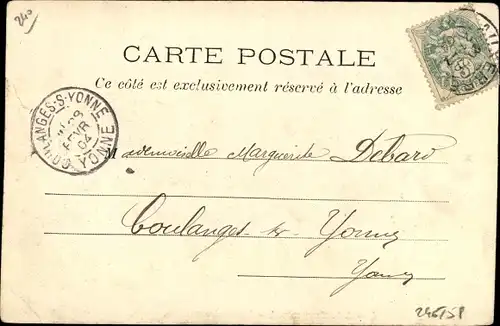 240
CARTE POSTALE
Ce côté est exclusivement réservé à l'adresse
COULANGES-S-YONNE
28
FEVR
04
YONNE
Mademoiselle Marguerite Debard
Coulanges sr Yonne
Yonne